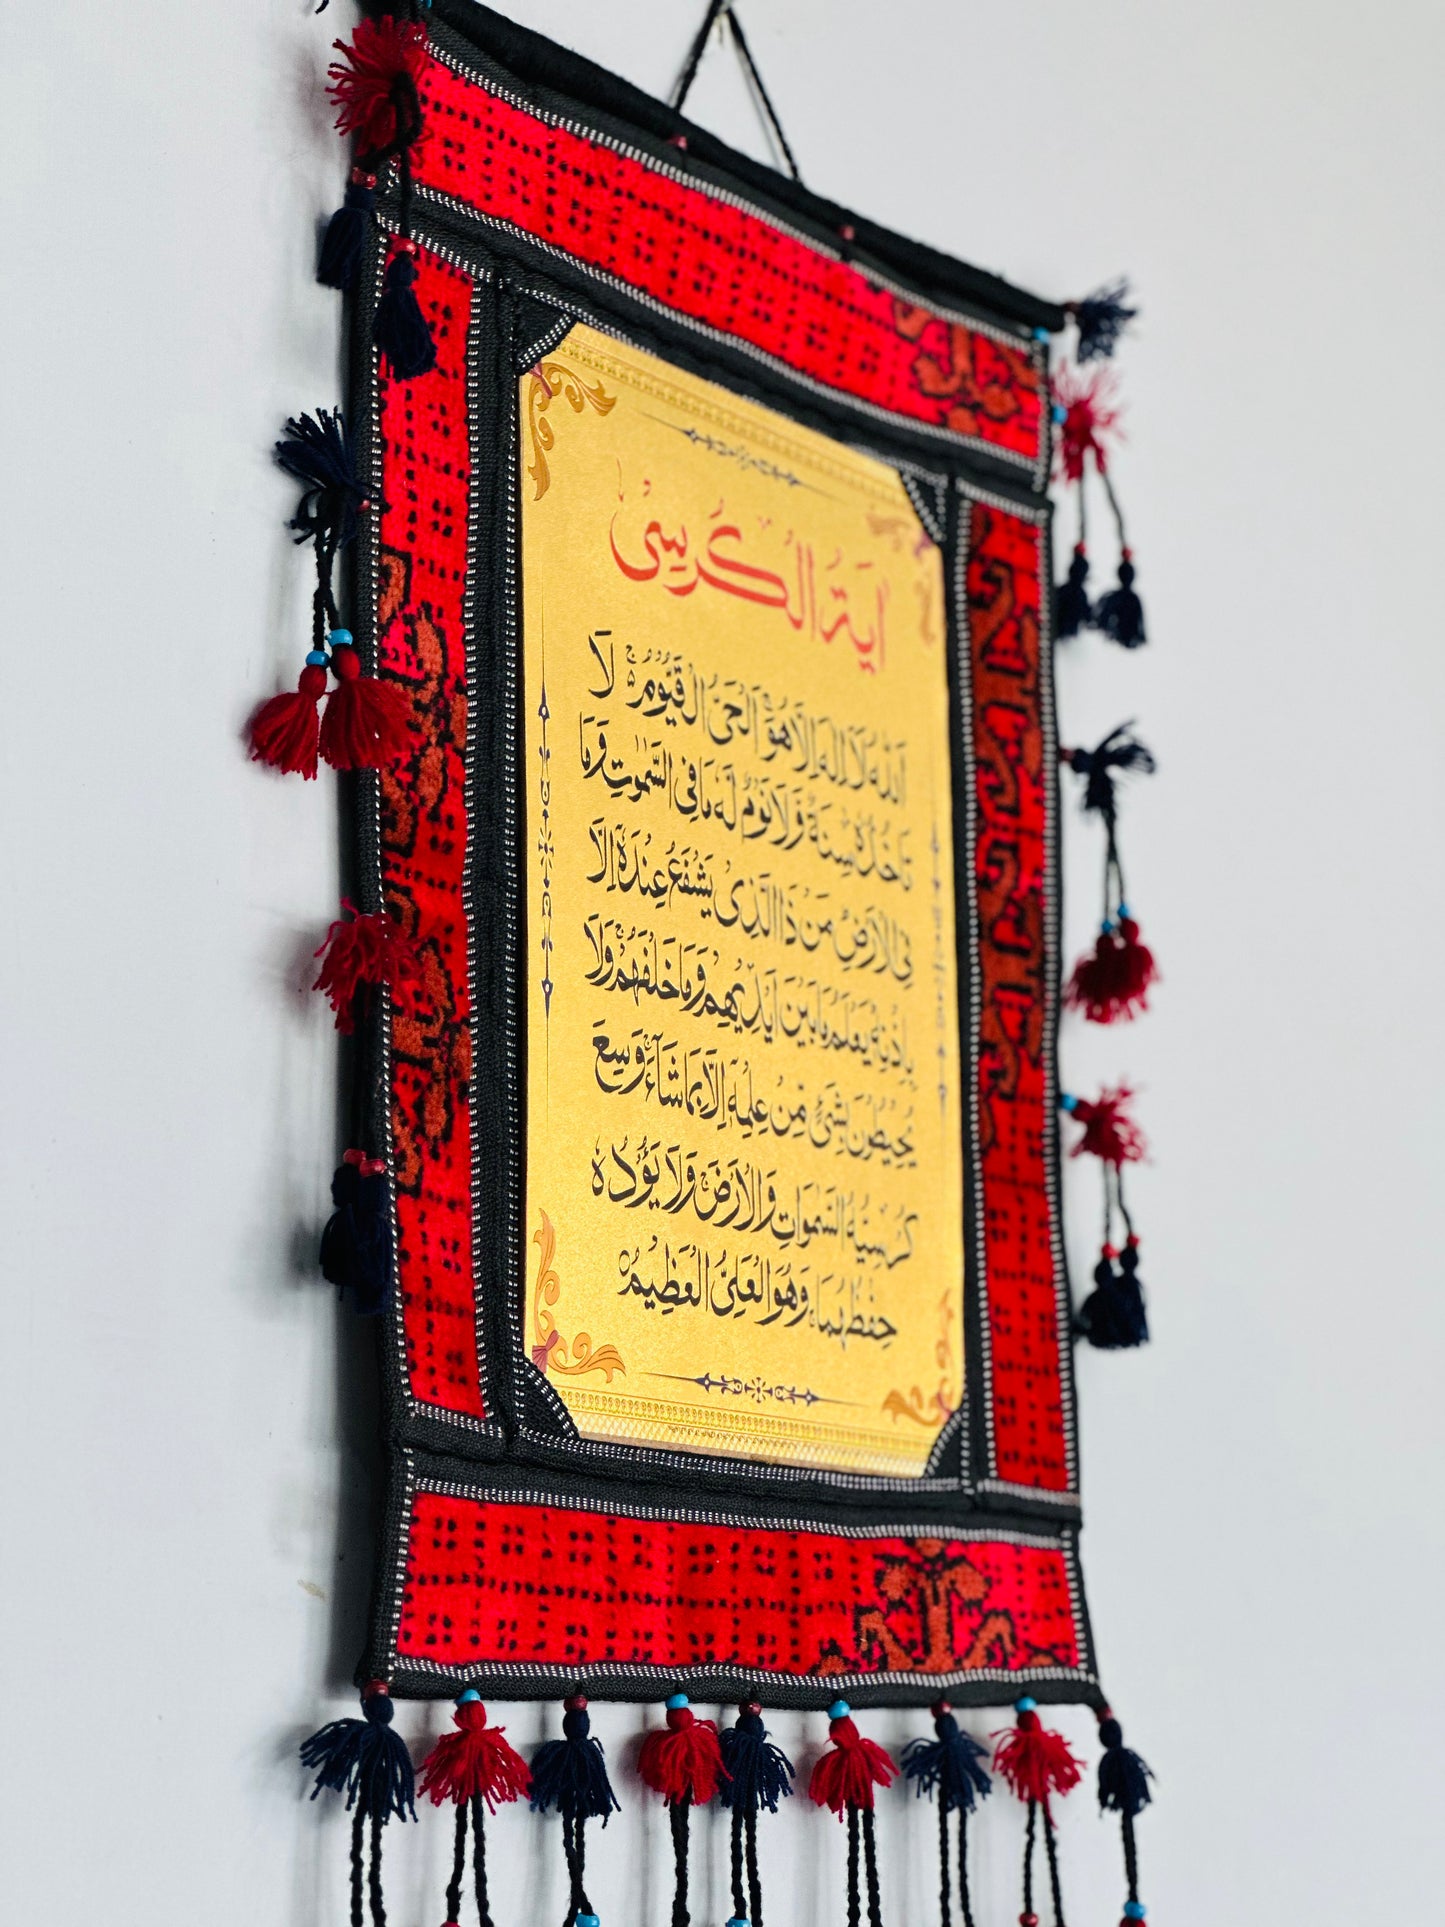 اٰيَةُ الْكُرْسِىْ
اَللّٰهُ لَاۤ اِلٰهَ اِلَّا هُوَ اَلْحَىُّ الْقَيُّوْمُ ۚ لَا
تَاْخُذُهٗ سِنَةٌ وَّلَا نَوْمٌ لَهٗ مَا فِى السَّمٰوٰتِ وَمَا
فِى الْاَرْضِ مَنْ ذَا الَّذِىْ يَشْفَعُ عِنْدَهٗۤ اِلَّا
بِاِذْنِهٖ يَعْلَمُ مَا بَيْنَ اَيْدِيْهِمْ وَمَا خَلْفَهُمْ ۚ وَلَا
يُحِيْطُوْنَ بِشَىْءٍ مِّنْ عِلْمِهٖۤ اِلَّا بِمَا شَآءَ ۚ وَسِعَ
كُرْسِيُّهُ السَّمٰوَاتِ وَالْاَرْضَ وَلَا يَؤُوْدُهٗ
حِفْظُهُمَا ۚ وَهُوَ الْعَلِىُّ الْعَظِيْمُ ۝